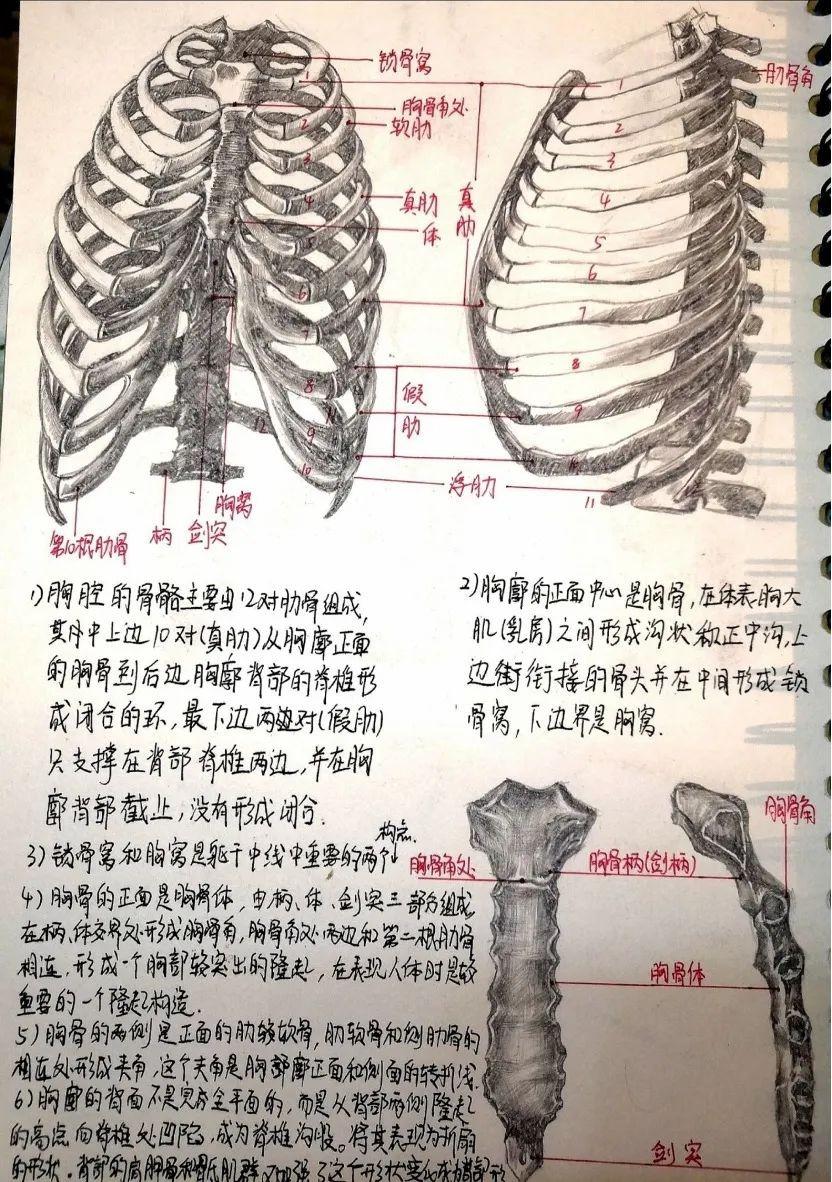 锁骨窝
肋骨角
1
1
胸骨角处
软肋
2
2
3
3
真肋
真肋
4
4
体
5
5
6
6
7
7
8
8
假肋
9
9
10
10
11
11
12
浮肋
胸窝
柄
剑突
第10根肋骨
1)胸腔的骨骼主要由12对肋骨组成,
其中上边10对(真肋)从胸廓正面
的胸骨到后边胸廓背部的脊椎形
成闭合的环,最下边两对(假肋)
只支撑在背部脊椎两边,并在胸
廓背部截止,没有形成闭合.
2)胸廓的正面中心是胸骨,在体表胸大
肌(乳房)之间形成沟状称正中沟,上
边衔接的骨头并在中间形成锁
骨窝,下边界是胸窝.
3)锁骨窝和胸窝是躯干中线中重要的两个构点.
4)胸骨的正面是胸骨体,由柄、体、剑突三部分组成,
在柄、体交界处形成胸骨角,胸骨角处两边和第二根肋骨
相连,形成一个胸部较突出的隆起,在表现人体时是较
重要的一个隆起构造.
5)胸骨的两侧是正面的肋软骨,肋软骨和侧肋骨的
相连处形成夹角,这个夹角是胸廓正面和侧面的转折线.
6)胸廓的背面不是完全平面的,而是从背部两侧隆起
的高点向脊椎处凹陷,成为脊椎沟。将其表现为折扇
的形状.背部的肩胛骨和骶肌群又加强了这个形状变化成背部形
胸骨角处
胸骨柄(剑柄)
胸骨角
胸骨体
剑突